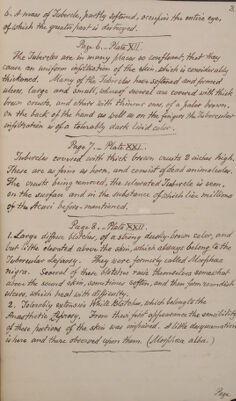 3.
6. A mass of Tubercle, partly softened, occupies the entire eye,
of which the greater part is destroyed.
Page 6. Plate XX.
The Tubercles are in many places so confluent, that they
cause an uniform infiltration of the skin, which is considerably
thickened. Many of the Tubercles have softened and formed
ulcers, large and small, whereof several are covered with thick
brown crusts, and others with thinner ones, of a paler brown.
On the back of the hand as well as on the fingers the Tubercular
infiltration is of a tolerably dark livid color.
Page 7. Plate XXI.
Tubercles covered with thick brown crusts 2 inches high.
These are as firm as horn, and consist of dead animalcules.
The crusts being removed, the ulcerated Tubercle is seen,
on the surface and in the substance of which live millions
of the Acari before-mentioned.
Page 8. Plate XXII.
1. Large diffuse blotches, of a strong dusky-brown color, and
but little elevated above the skin, which always belong to the
Tubercular Leprosy. They were formerly called Morphæa
nigra. Several of these blotches raise themselves somewhat
above the sound skin, sometimes soften, and then form roundish
ulcers, which heal with difficulty.
2. Tolerably extensive White Blotches, which belong to the
Anæsthetic Leprosy. From their first appearance the sensibility
of these portions of the skin was impaired. A little desquamation
is here and there observed upon them. (Morphæa alba.)
Page